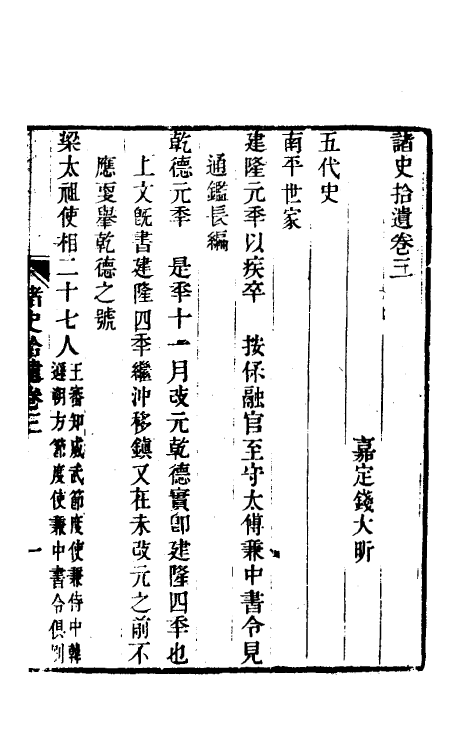 諸史拾遺卷三
嘉定錢大昕
五代史
南平世家
建隆元年以疾卒　按保融官至守太傅兼中書令見
通鑑長編
乾德元年　是年十一月改元乾德實卽建隆四年也
上文旣書建隆四年繼沖移鎮又在未改元之前不
應更舉乾德之號
梁太祖使相二十七人王審知威武節度使兼侍中韓
遜朔方節度使兼中書令俱
諸史拾遺卷三
一